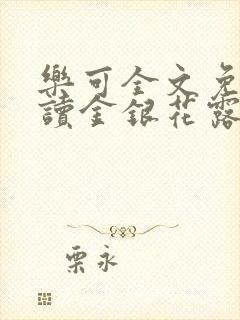 樂可全文免
讀金銀花露
栗永